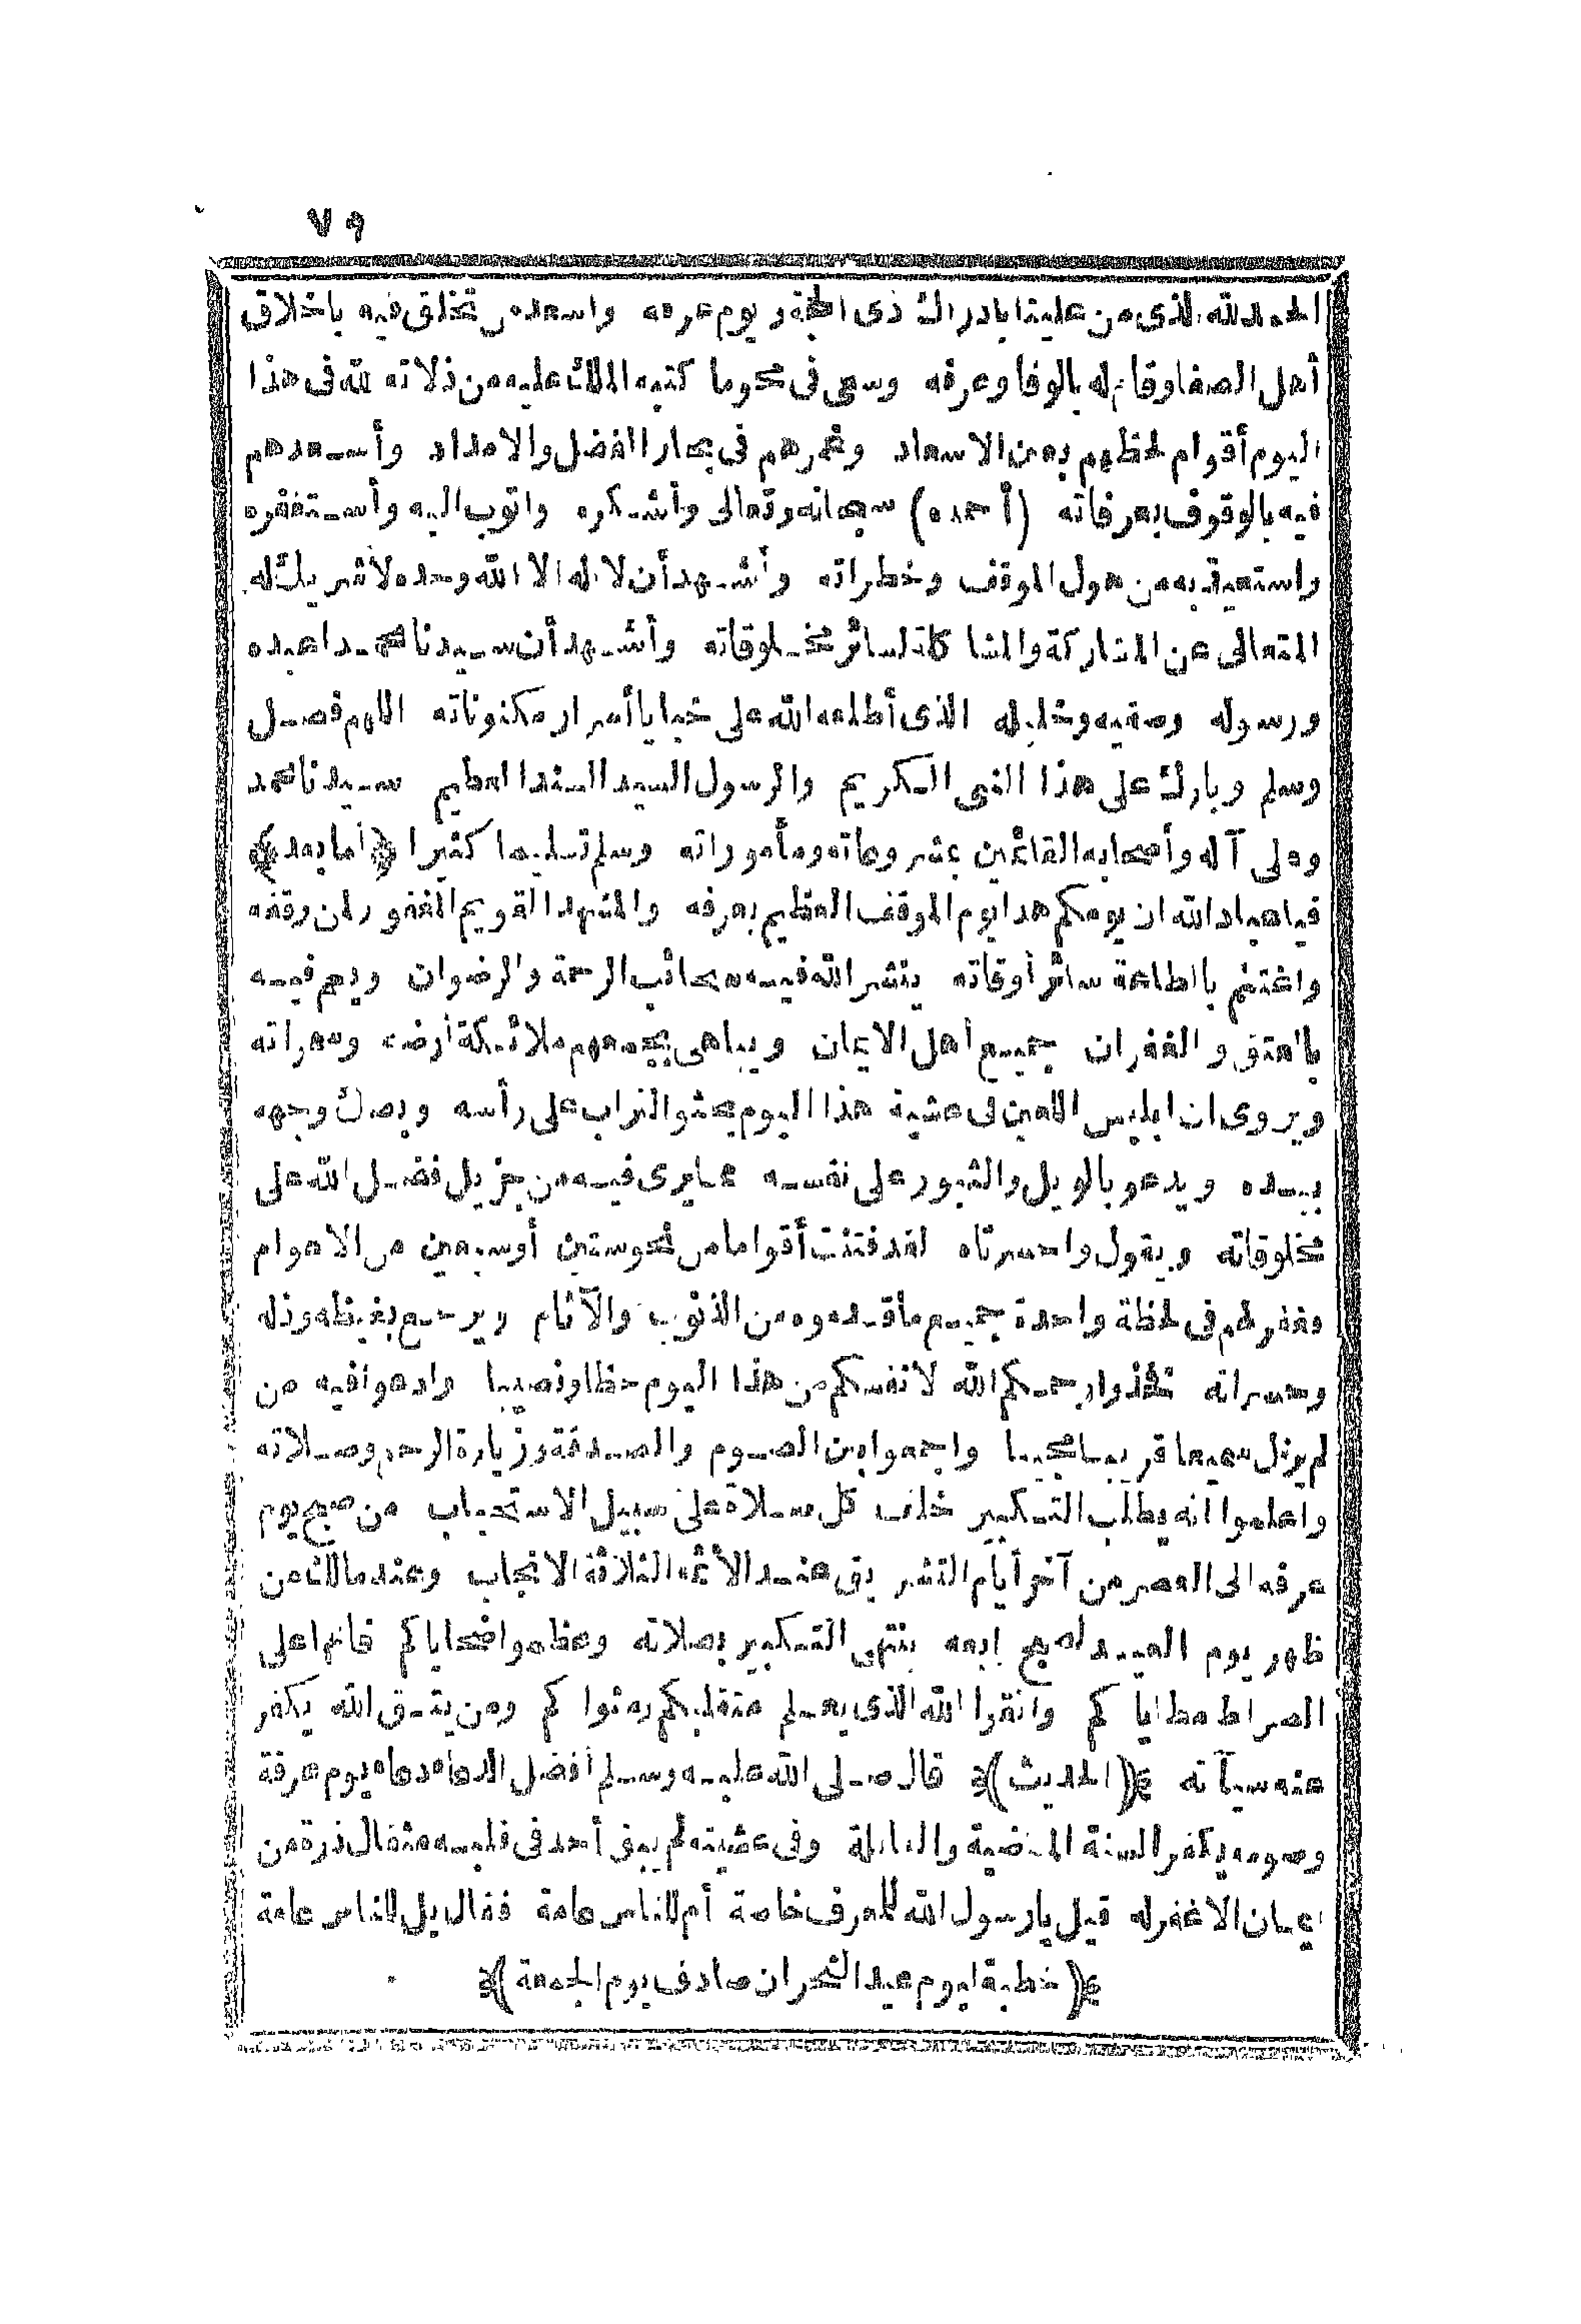 ٧٩
الحمد لله الذى من علينا بادراك ذى الحجة ويوم عرفه واسعد من تخلق فيه باخلاق
أهل الصفا وقام له بالوفا وعرفه وسعى فى محو ما كتبه الملك عليه من ذلاته لله فى هذا
اليوم أقوام لحظهم بعين الاسعاد وغمرهم فى بحار الفضل والامداد وأسعدهم
فيه بالوقوف بعرفاته (أحمده) سبحانه وتعالى وأشكره واتوب اليه وأستغفره
واستعين به من هول الموقف وخطراته وأشهد أن لا اله الا الله وحده لا شريك له
المتعالى عن المشاركة والمشاكلة لسائر مخلوقاته وأشهد أن سيدنا محمدا عبده
ورسوله وصفيه وخليله الذى أطلعه الله على خبايا أسرار مكنوناته اللهم فصل
وسلم وبارك على هذا النبى الكريم والرسول السيد السند العظيم سيدنا محمد
وعلى آله وأصحابه القائمين بمشروعاته ومأموراته وسلم تسليما كثيرا (أما بعد)
فيا عباد الله ان يومكم هذا يوم الموقف العظيم بعرفه والمشهد القويم الغفور لمن وقفه
واغتنم بالطاعة سائر أوقاته ينشر الله فيه سحائب الرحمة والرضوان ويعم فيه
بالعتق والغفران جميع أهل الايمان ويباهى بجمعهم ملائكة أرضه وسمواته
ويروى ان ابليس اللعين فى عشية هذا اليوم يحثو التراب على رأسه ويصك وجهه
بيده ويدعو بالويل والثبور على نفسه مما يرى فيه من جزيل فضل الله على
مخلوقاته ويقول واحسرتاه لقد فتنت أقواما من نحو ستين أو سبعين من الاعوام
وغفر لهم فى لحظة واحدة جميع ما قدموه من الذنوب والآثام ويرجع بغيظه وذله
وحسراته فخذوا رحمكم الله لانفسكم من هذا اليوم حظا ونصيبا وادعوا فيه من
لم يزل سميعا قريبا مجيبا واجمعوا بين الصوم والصدقة وزيارة الرحم وصلاته
واعلموا انه يطلب التكبير خلف كل صلاة على سبيل الاستحباب من صبح يوم
عرفه الى العصر من آخر أيام التشريق عند الأئمة الثلاثة الانجاب وعند مالك من
ظهر يوم العيد لصبح رابعه ينتهى التكبير بصلاته وعظموا ضحاياكم فانها على
الصراط مطاياكم واتقوا الله الذى يعلم متقلبكم ومثواكم ومن يتق الله يكفر
عنه سيآته (الحديث) قال صلى الله عليه وسلم أفضل الدعاء دعاء يوم عرفة
وصومه يكفر السنة الماضية والقابلة وفى عشيته لم يبق أحد فى قلبه مثقال ذرة من
ايمان الا غفر له قيل يا رسول الله للمعرف خاصة أم للناس عامة فقال بل للناس عامة
(خطبة ليوم عيد النحر ان صادف يوم الجمعة)